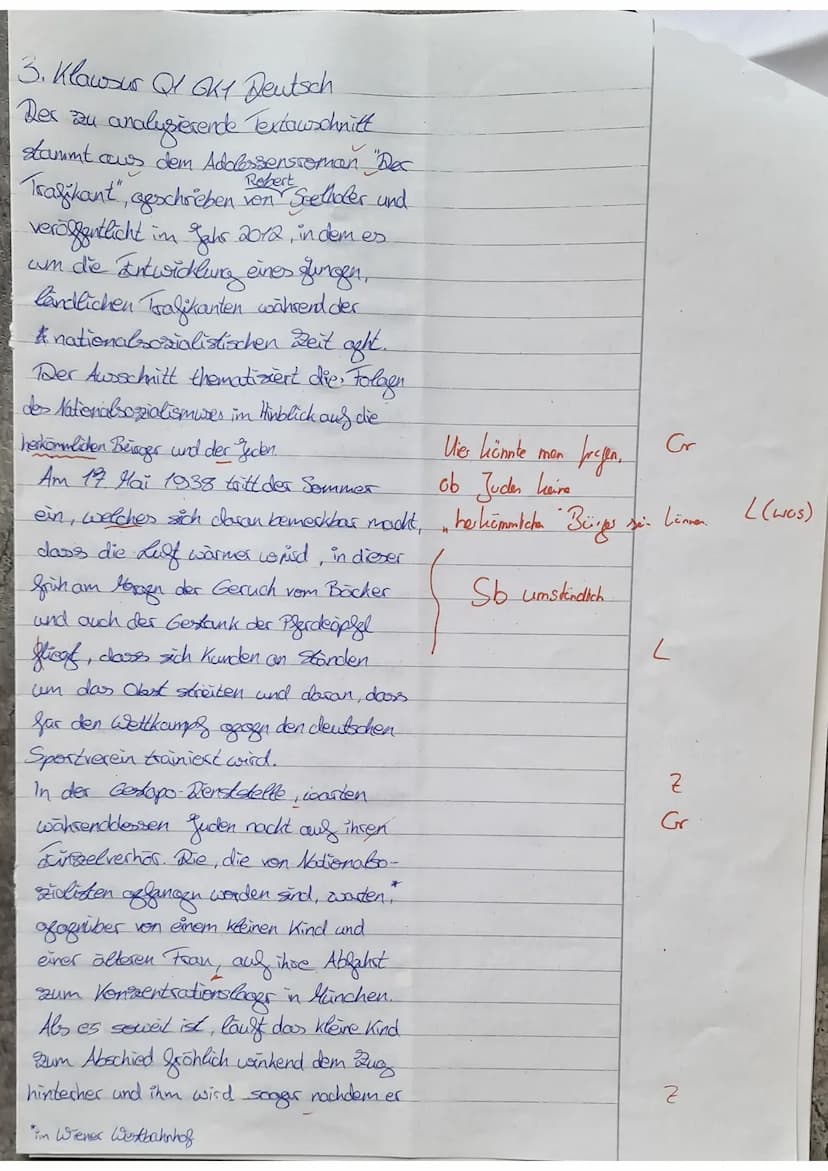 3. Klausur Q1 GK1 Deutsch
Der zu analysierende Textausschnitt
stammt aus dem Adoleszensroman "Der
Trafikant", geschrieben von Robert Seethaler und
veröffentlicht im Jahr 2012, in dem es
um die Entwicklung eines jungen,
ländlichen Trafikanten während der
nationalsozialistischen Zeit geht.
Der Ausschnitt thematisiert die Folgen
des Nationalsozialismuses im Hinblick auf die
herkömmlichen Bürger und der Juden.
Hier könnte man fragen,
Gr
Am 17 Mai 1938 tritt der Sommer
ob Juden keine
ein, welches sich daran bemerkbar macht,
"herkömmlichen" Bürger sein können
L (was)
dass die Luft wärmer wird, in dieser
früh am Morgen der Geruch vom Bäcker
Sb umständlich
und auch der Gestank der Pferdeäpfel
fliegt, dass sich Kunden an Ständen
L
um das Obst streiten und daran, dass
für den Wettkampf gegen den deutschen
Sportverein trainiert wird.
In der Gestapo-Dienststelle, warten
Z
währenddessen Juden nackt auf ihren
Gr
Einzelverhör. Die, die von Nationalso-
zialisten gefangen worden sind, warten,*
gegnüber von einem kleinen Kind und
einer älteren Frau, auf ihre Abfahrt
zum Konzentrationslager in München.
Als es soweit ist, läuft das kleine Kind
zum Abschied fröhlich winkend dem Zug
hinterher und ihm wird sogar nachdem er
Z
*im Wiener Westbahnhof